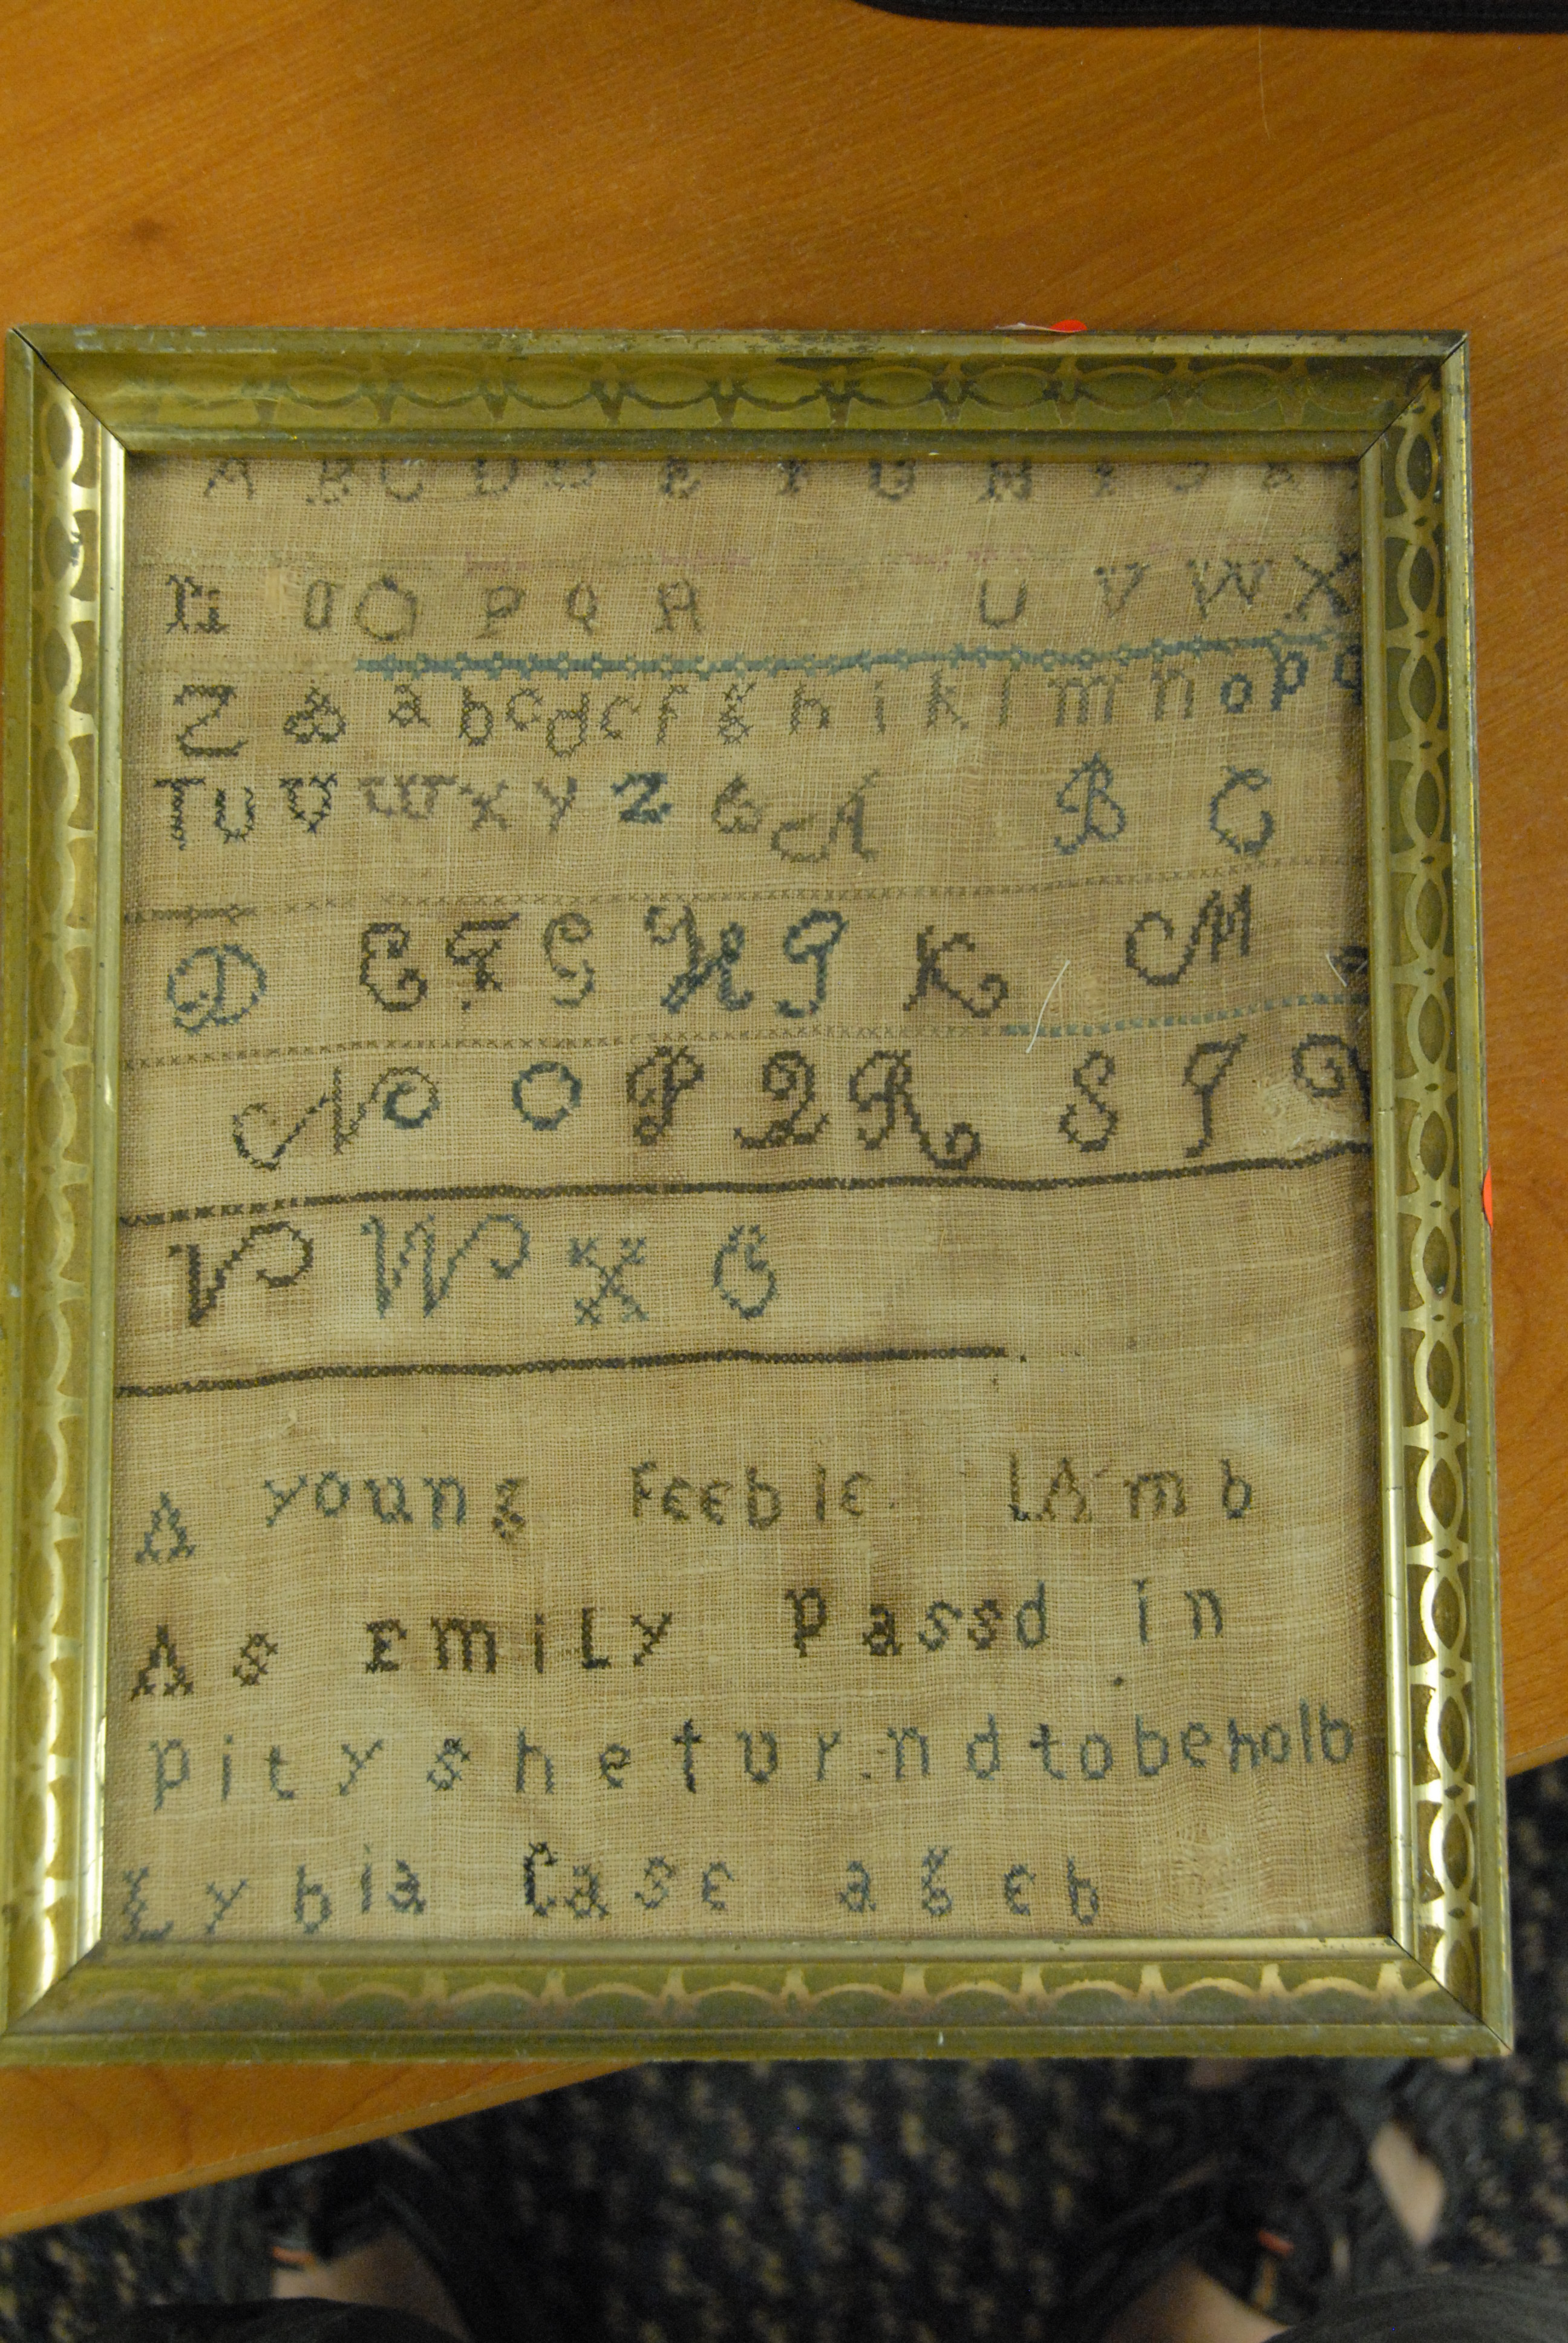 A B C D D E F G H I J K
O P Q R U V W X
Z & a b c d e f g h i k l m n o p q
T U V W X Y Z & A B C
D E F G H I K M
N O O P Q R S T
V W X G
A young Feeble lAmb
As EmiLy Passd in
Pity she turnd to beholb
Lybia Case ageb